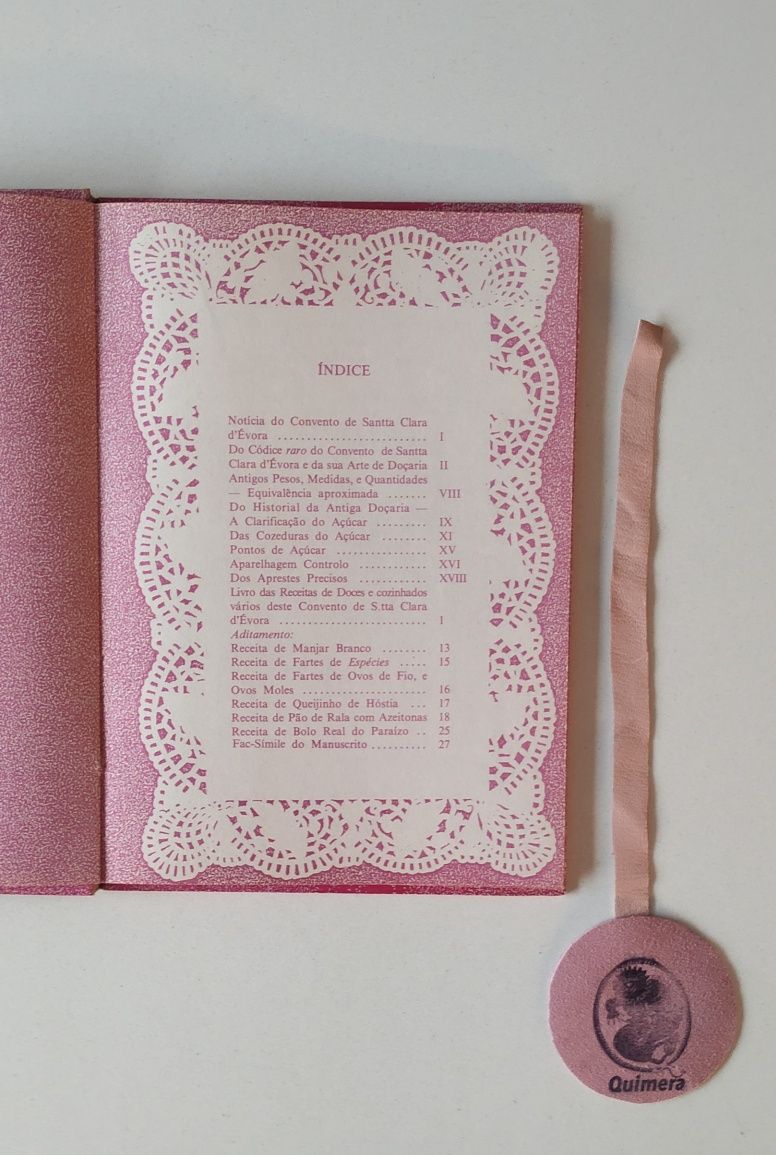 ÍNDICE
Notícia do Convento de Santta Clara
d'Évora ......................... I
Do Códice raro do Convento de Santta
Clara d'Évora e da sua Arte de Doçaria II
Antigos Pesos, Medidas, e Quantidades
— Equivalência aproximada ....... VIII
Do Historial da Antiga Doçaria —
A Clarificação do Açúcar ......... IX
Das Cozeduras do Açúcar ........ XI
Pontos de Açúcar ............... XV
Aparelhagem Controlo ........... XVI
Dos Aprestes Precisos ........... XVIII
Livro das Receitas de Doces e cozinhados
vários deste Convento de S.tta Clara
d'Évora ......................... 1
Aditamento:
Receita de Manjar Branco ........ 13
Receita de Fartes de Espécies ..... 15
Receita de Fartes de Ovos de Fio, e
Ovos Moles ..................... 16
Receita de Queijinho de Hóstia ... 17
Receita de Pão de Rala com Azeitonas 18
Receita de Bolo Real do Paraízo .. 25
Fac-Símile do Manuscrito .......... 27
Quimera